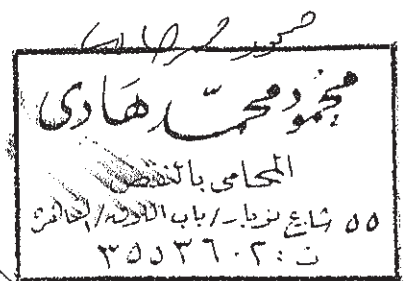 محمود محمد هادى
محمود محمد هادى
المحامى بالنقض
٥٥ شارع نوبار / باب اللوق / القاهرة
ت : ٣٥٥٣٦٠٢